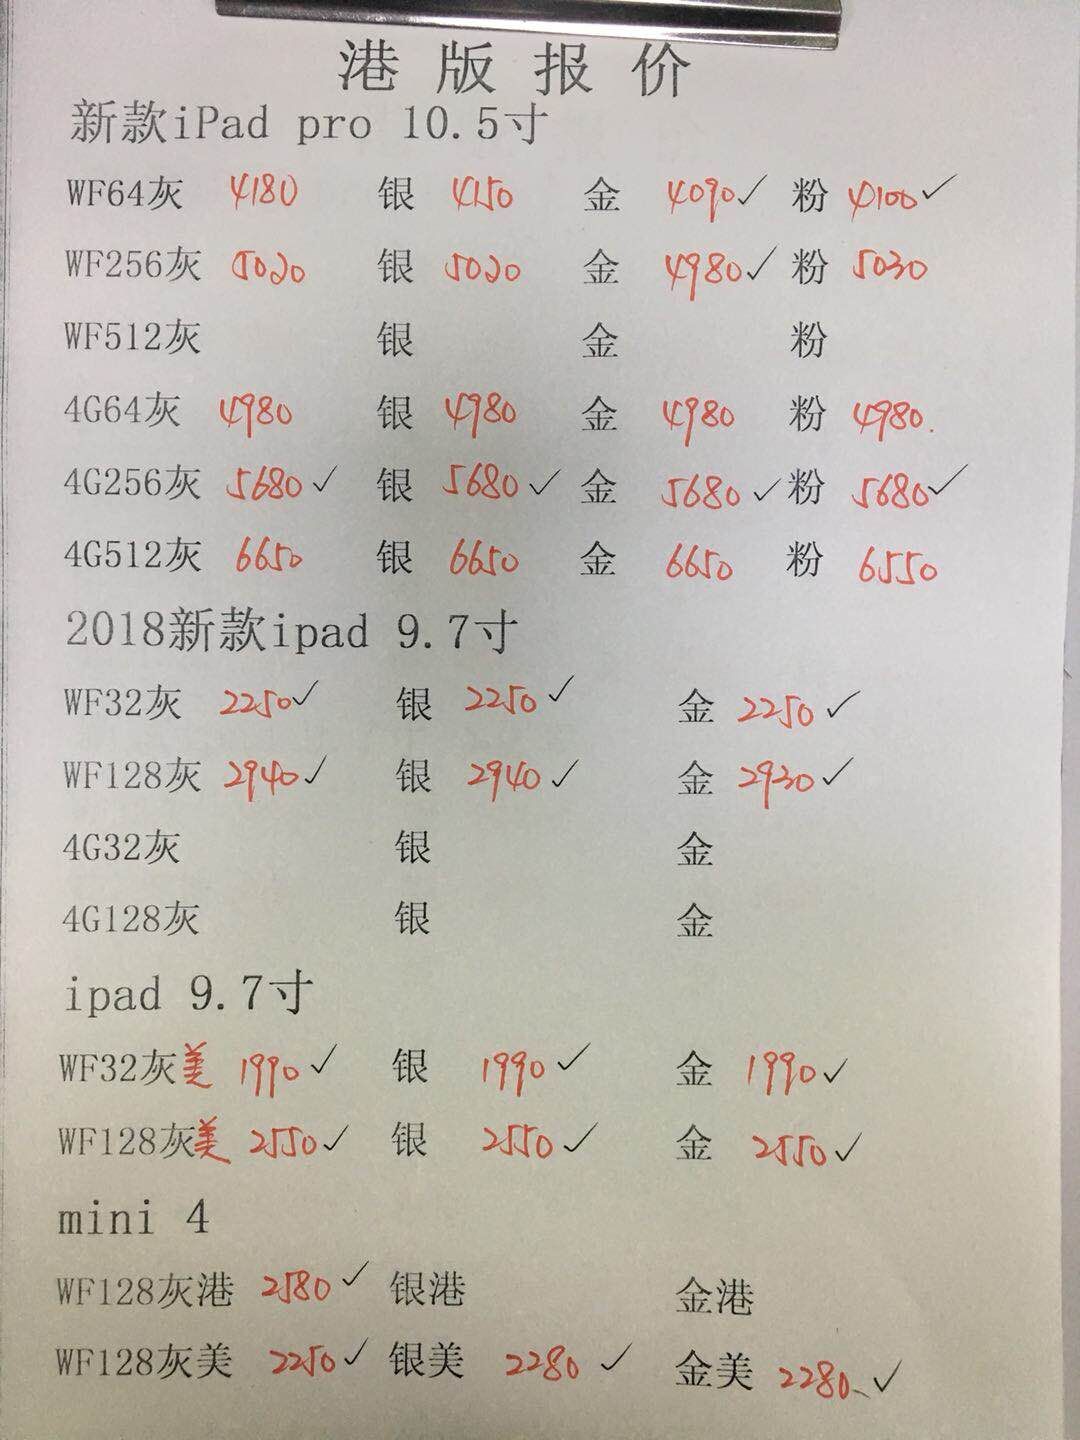 港版报价
新款iPad pro 10.5寸
WF64灰 4180 银 4150 金 4090✓ 粉 4100✓
WF256灰 5020 银 5020 金 4980✓ 粉 5030
WF512灰 银 金 粉
4G64灰 4980 银 4980 金 4980 粉 4980.
4G256灰 5680✓ 银 5680✓ 金 5680✓ 粉 5680✓
4G512灰 6650 银 6650 金 6650 粉 6550
2018新款ipad 9.7寸
WF32灰 2250✓ 银 2250✓ 金 2250✓
WF128灰 2940✓ 银 2940✓ 金 2930✓
4G32灰 银 金
4G128灰 银 金
ipad 9.7寸
WF32灰美 1990✓ 银 1990✓ 金 1990✓
WF128灰美 2550✓ 银 2550✓ 金 2550✓
mini 4
WF128灰港 2580✓ 银港 金港
WF128灰美 2250✓ 银美 2280✓ 金美 2280✓